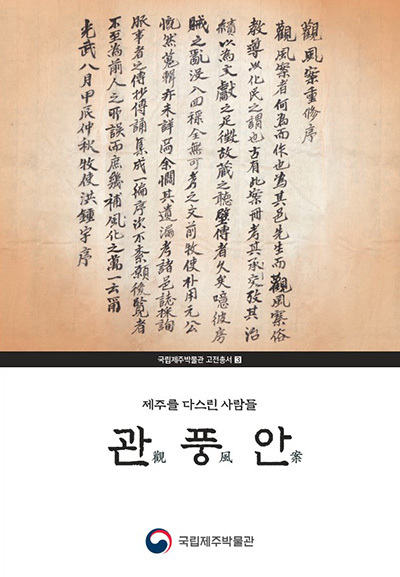 觀風案重修序
觀風案者何為而作也為其邑先生而觀風察俗
教導以化民之謂也古有此案冊考其承交攷其治
績以為文獻之足徵故藏之聽壁傳者久矣噫彼房
賊之亂沒入回祿全無可考之文前牧使朴用元公
慨然蒐輯亦未詳焉余憫其遺漏考諸邑誌採詢
服事者之傳抄傳誦集成一編序次不紊願後覽者
不至為前人之所誤而庶幾補風化之萬一云爾
光武八月甲辰仲秋牧使洪鍾宇序
국립제주박물관 고전총서 3
제주를 다스린 사람들
관觀 풍風 안案
국립제주박물관